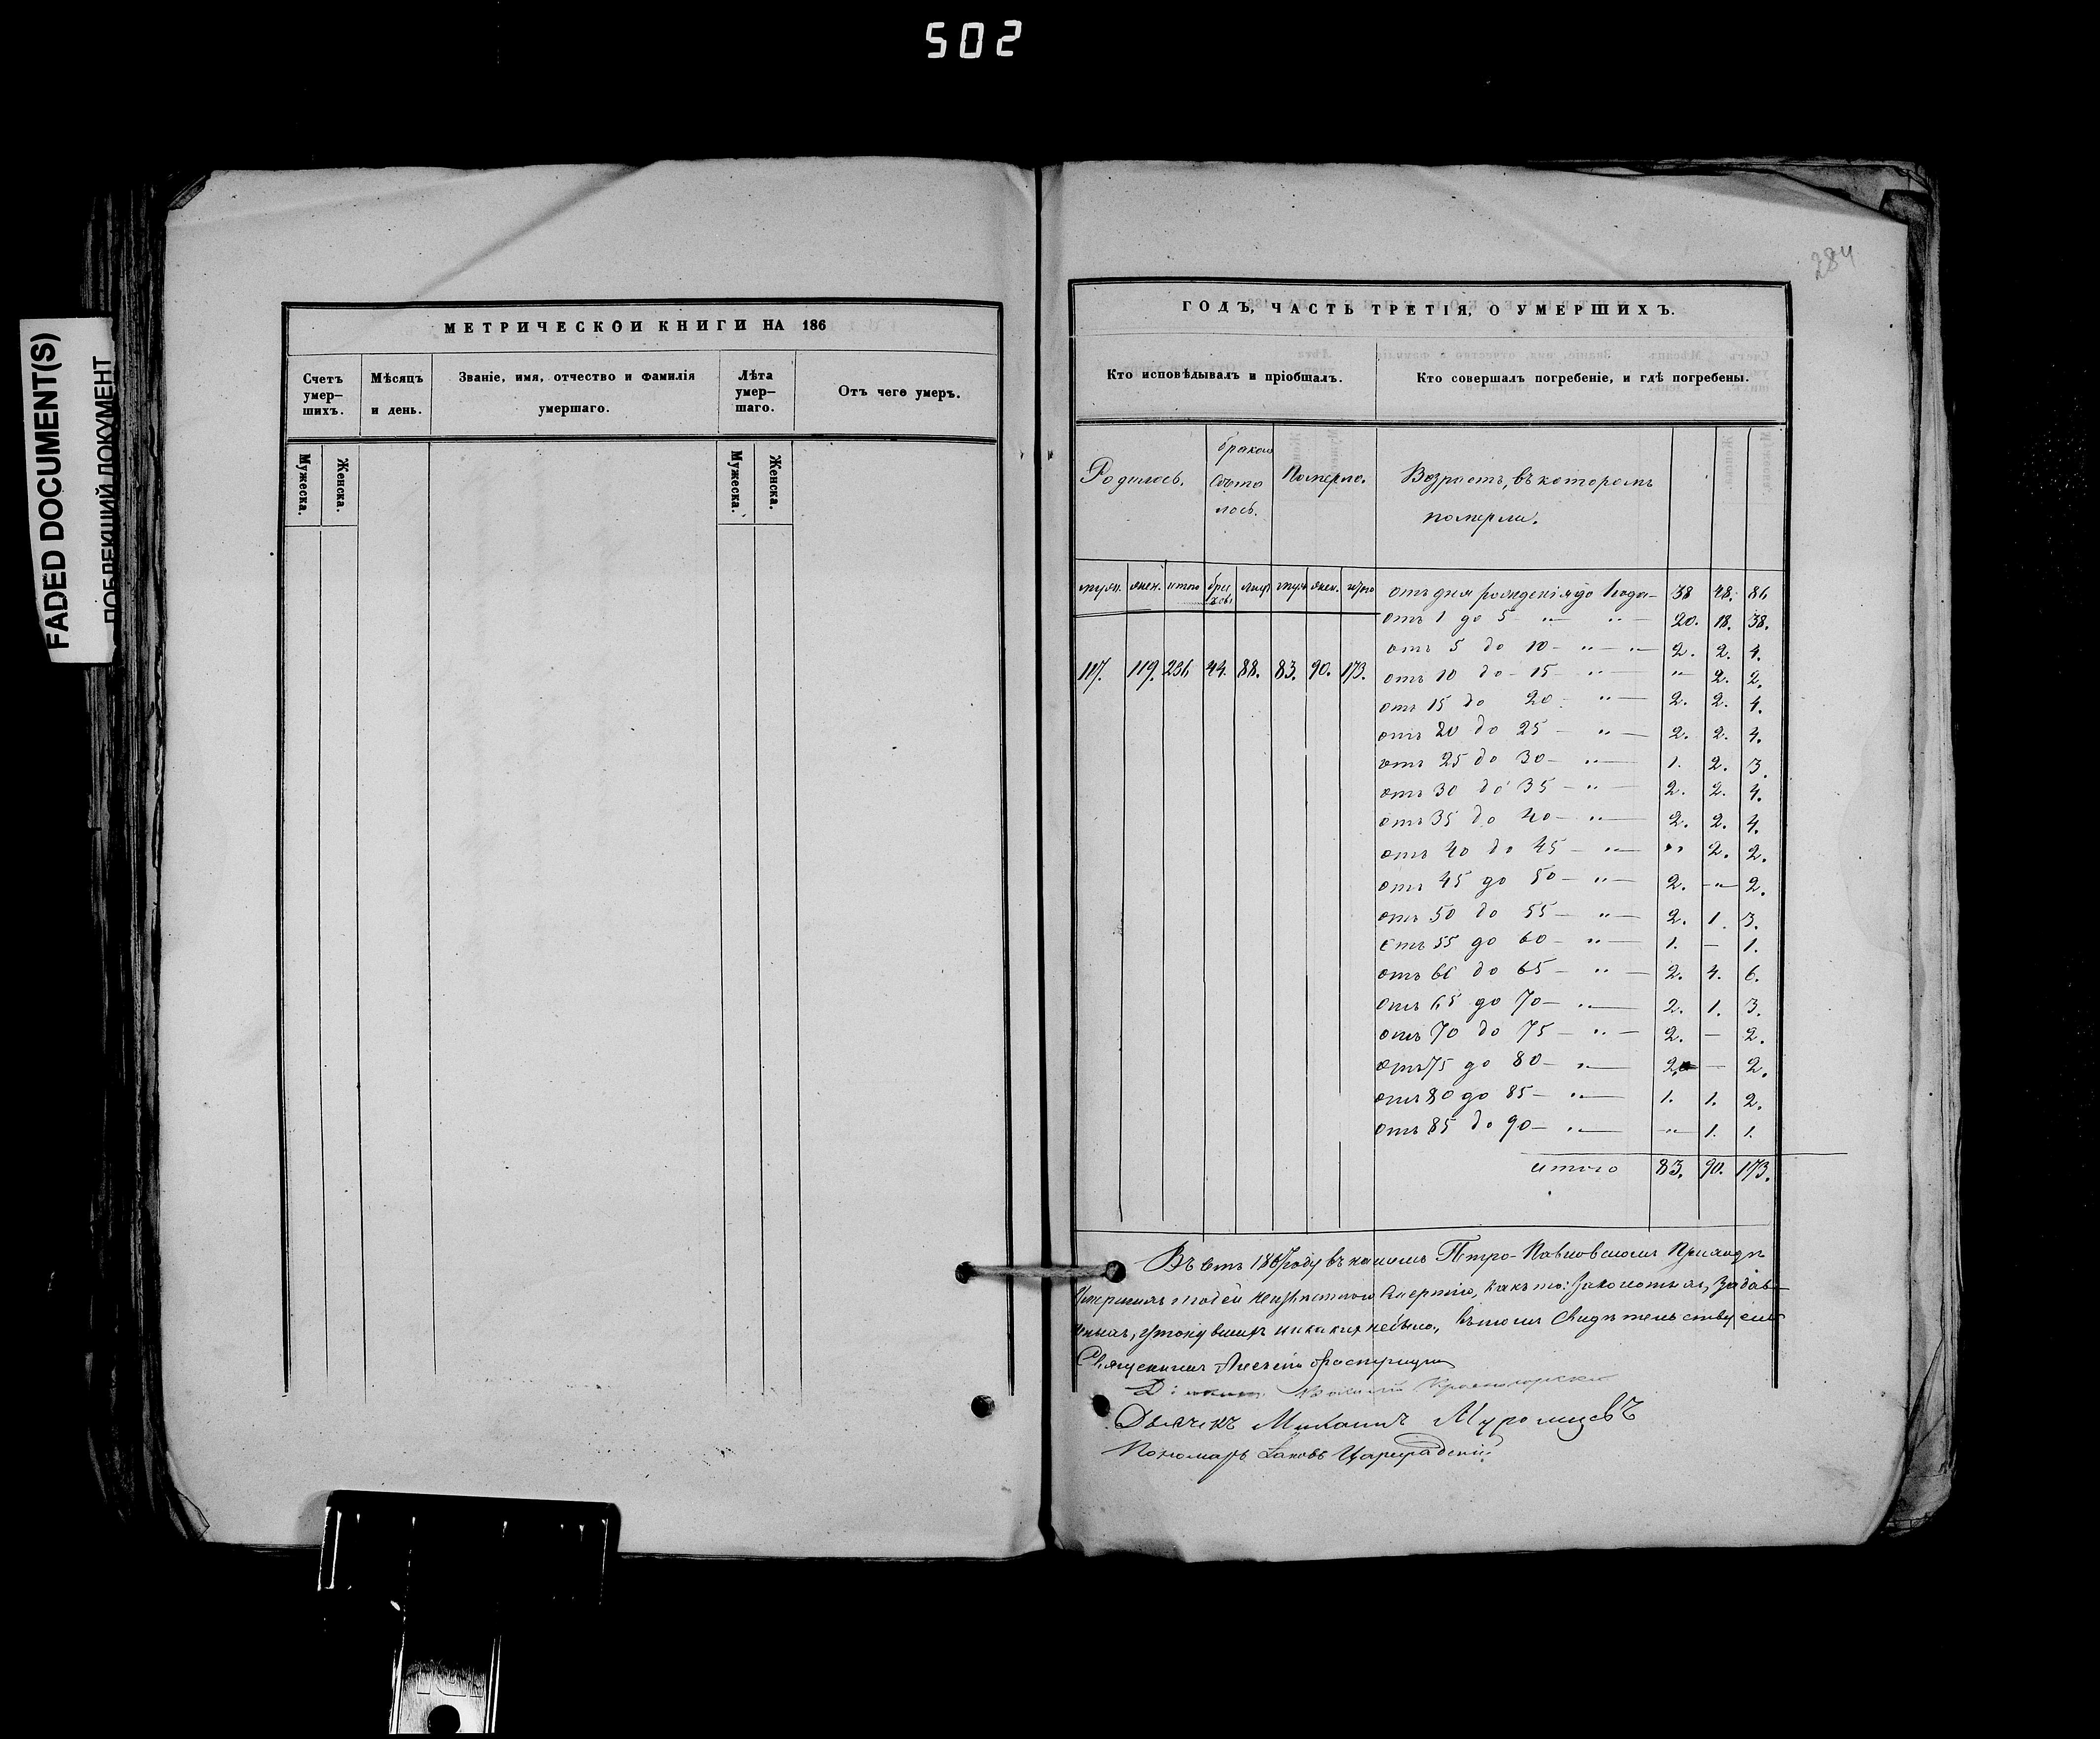 502
FADED DOCUMENT(S)
ПОБЛЕКШИЙ ДОКУМЕНТ
МЕТРИЧЕСКОЙ КНИГИ НА 186
Счетъ умер— шихъ.
Мѣсяцъ и день.
Званіе, имя, отчество и фамилія умершаго.
Лѣта умер— шаго.
Отъ чего умеръ.
Мужеска.
Женска.
Мужеска.
Женска.
284
ГОДЪ, ЧАСТЬ ТРЕТІЯ, О УМЕРШИХЪ.
Кто исповѣдывалъ и пріобщалъ.
Кто совершалъ погребеніе, и гдѣ погребены.
Родилось.
браков
состо
лось.
Померло.
Возрастъ, въ которомъ
померли.
муж. жен. итого муж. жен. итого
117. 119. 236 44. 88. 83. 90. 173.
отъ дня рожденія до 1 года — 38 48. 86
отъ 1 до 5 " " — 20. 18. 38.
отъ 5 до 10 — " — " — 2. 2. 4.
отъ 10 до 15 — " — " 2. 2.
отъ 15 до 20 " — 2. 2. 4.
отъ 20 до 25 — " — 2. 2. 4.
отъ 25 до 30 — " — 1. 2. 3.
отъ 30 до 35 — " — 2. 2. 4.
отъ 35 до 40 — " — 2. 2. 4.
отъ 40 до 45 — " — " 2. 2.
отъ 45 до 50 — " — 2. — " — 2.
отъ 50 до 55 — " — 2. 1. 3.
отъ 55 до 60 — " — 1. — 1.
отъ 60 до 65 — " — 2. 4. 6.
отъ 65 до 70 — " — 2. 1. 3.
отъ 70 до 75 — " — 2. — 2.
отъ 75 до 80 — " — 2. — 2.
отъ 80 до 85 — " — 1. 1. 2.
отъ 85 до 90 — " — " 1. 1.
итого 83. 90. 173.
Въ семъ 1867 году въ нашемъ Петро-Павловскомъ Приходѣ
умершихъ людей неизвѣстною смертію, какъ то: заколотыхъ, задав—
ленныхъ, утонувшихъ никакихъ небыло, въ томъ свидѣтельствуемъ
Священникъ Алексѣй
Василій Красногорскій
Дьячекъ Михаилъ Муромцевъ
Пономарь Іаковъ Цареградскій